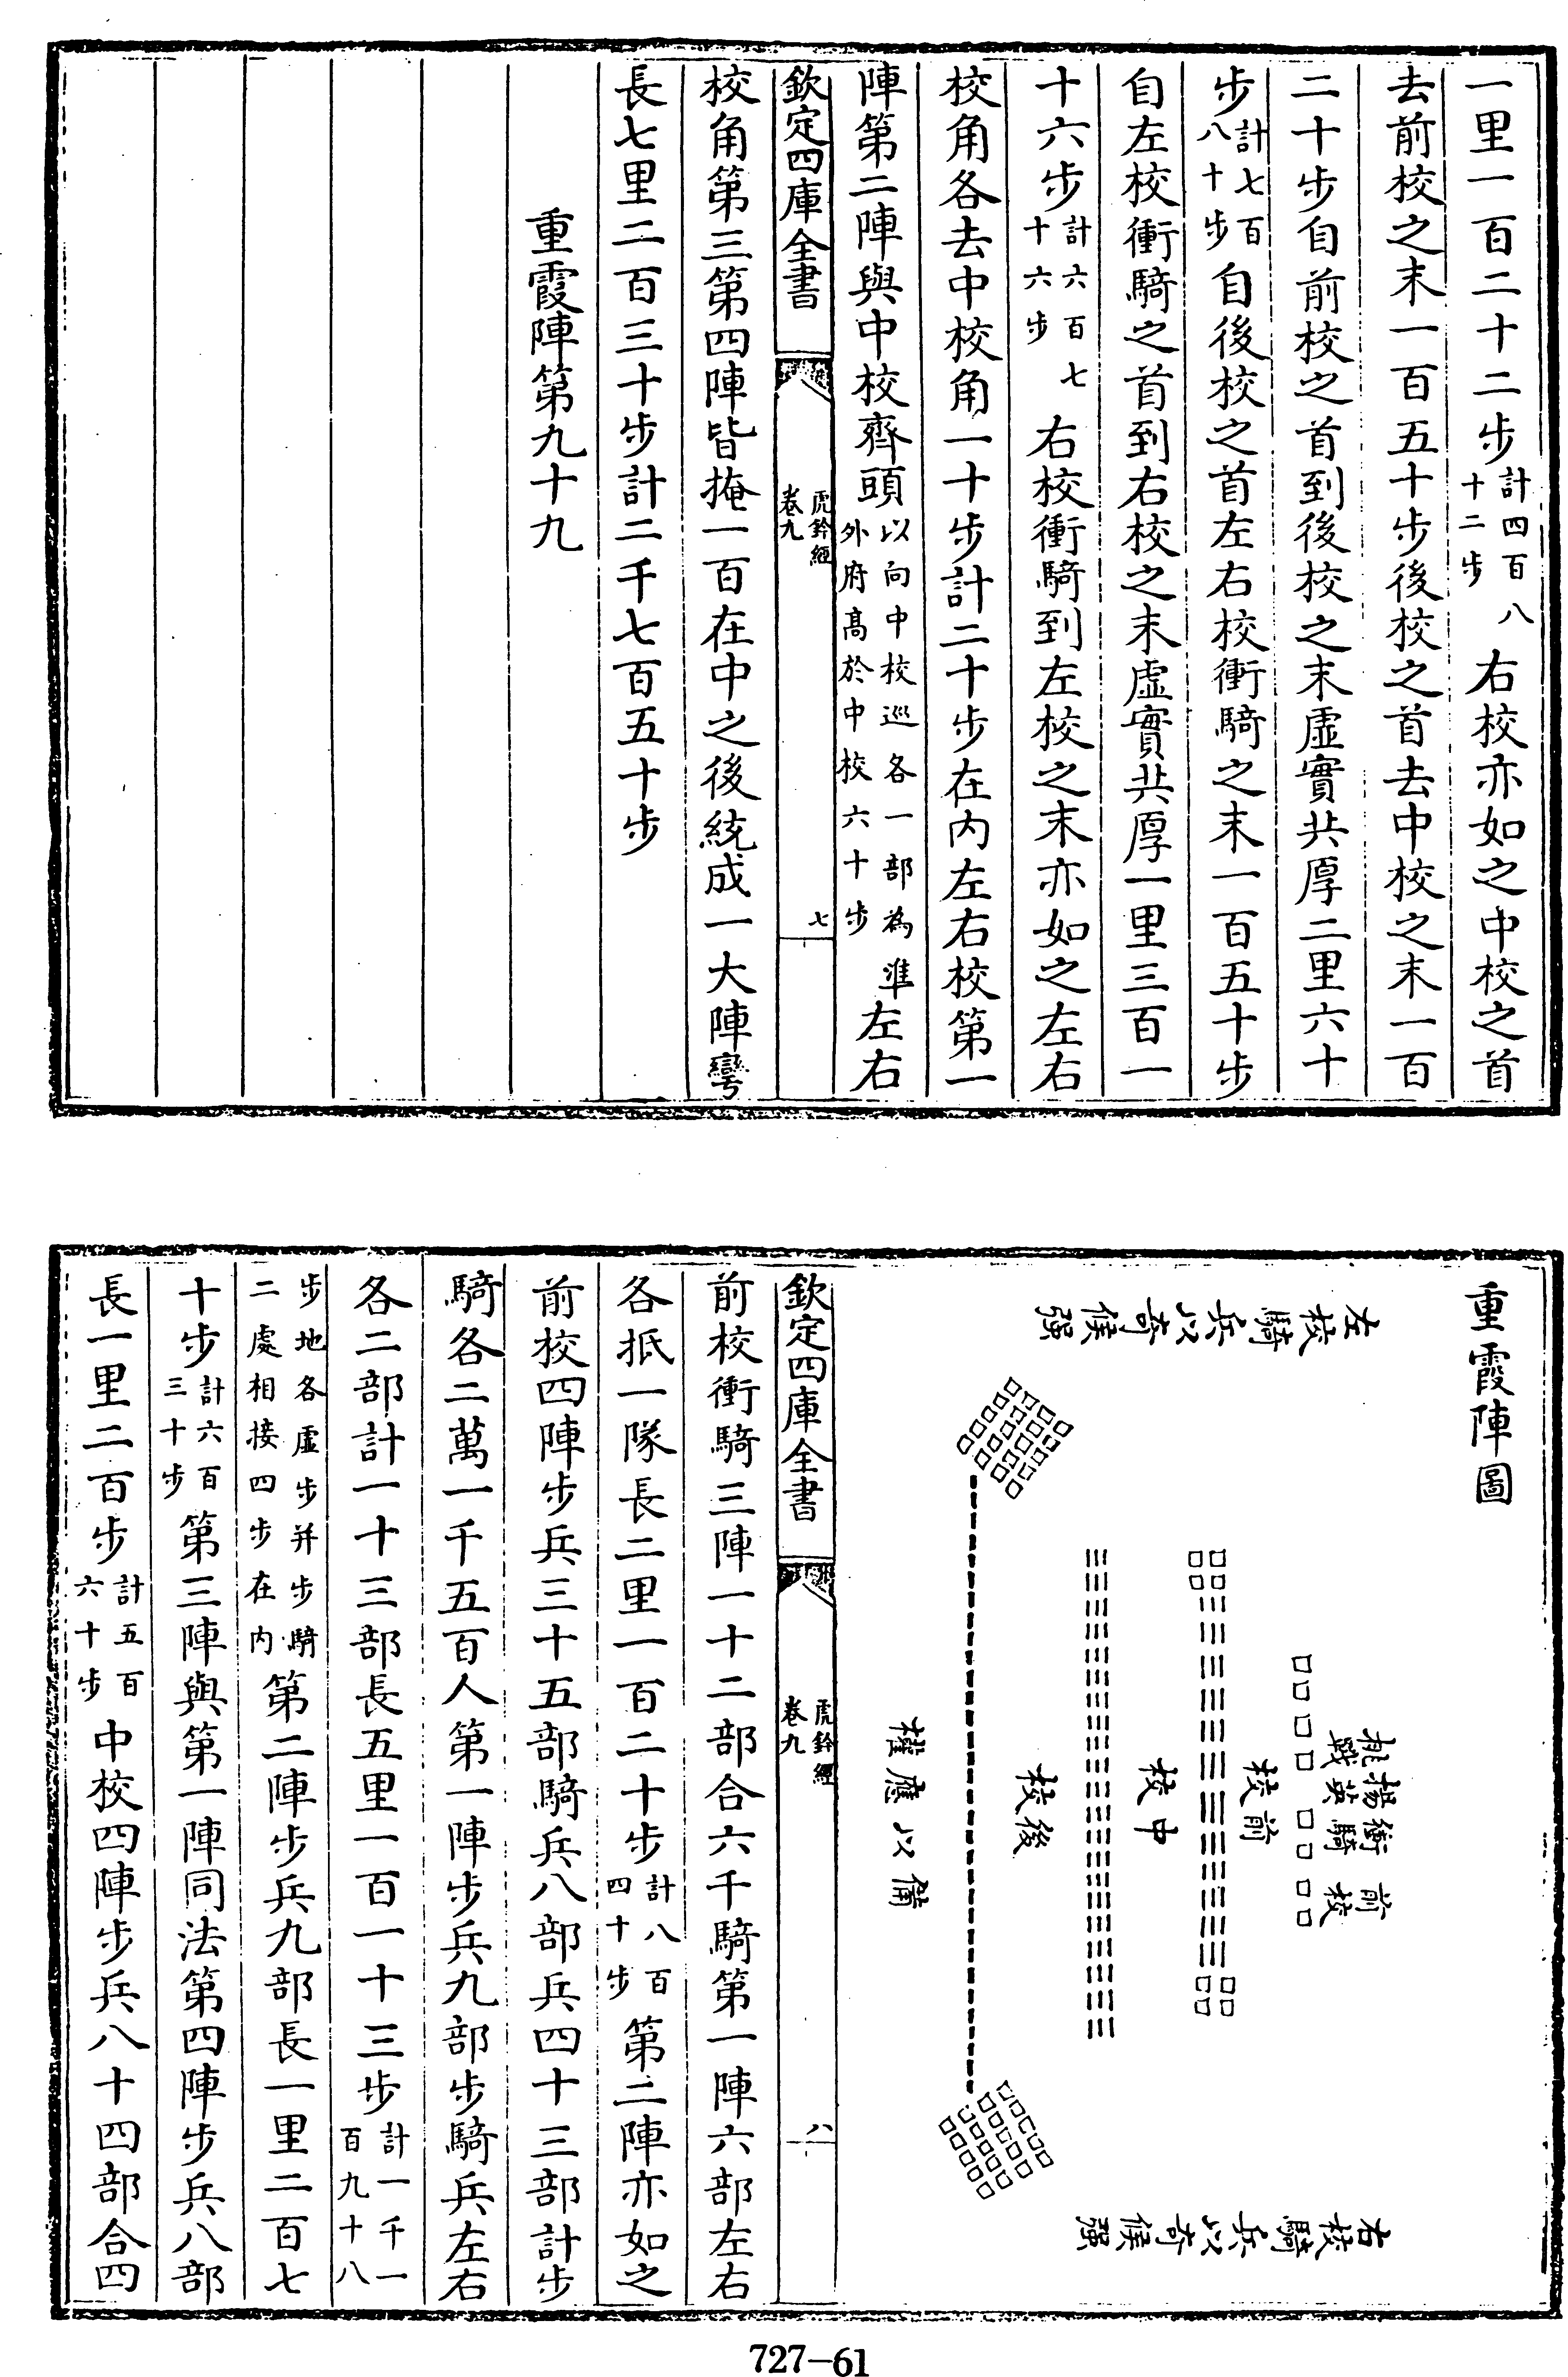 一里一百二十二步計四百八十二步右校亦如之中校之首
去前校之末一百五十步後校之首去中校之末一百
二十步自前校之首到後校之末虛實共厚二里六十
步計七百八十步自後校之首左右校衝騎之末一百五十步
自左校衝騎之首到右校之末虛實共厚一里三百一
十六步計六百七十六步右校衝騎到左校之末亦如之左右
校角各去中校角一十步計二十步在內左右校第一
陣第二陣與中校齊頭以向中校巡各一部為準外府髙於中校六十步左右
欽定四庫全書
虎鈐經
卷九
七
校角第三第四陣皆掩一百在中之後統成一大陣彎
長七里二百三十步計二千七百五十步
重霞陣第九十九
重霞陣圖
左校騎兵以奇候強
前校衝騎揚英挑戰
前校
中校
後校
權應以備
右校騎兵以奇候強
欽定四庫全書
虎鈐經
卷九
八
前校衝騎三陣一十二部合六千騎第一陣六部左右
各抵一隊長二里一百二十步計八百四十步第二陣亦如之
前校四陣步兵三十五部騎兵八部兵四十三部計步
騎各二萬一千五百人第一陣步兵九部步騎兵左右
各二部計一十三部長五里一百一十三步計一千一百九十八
步地各虛步并步騎二處相接四步在內第二陣步兵九部長一里二百七
十步計六百三十步第三陣與第一陣同法第四陣步兵八部
長一里二百步計五百六十步中校四陣步兵八十四部合四
727-61